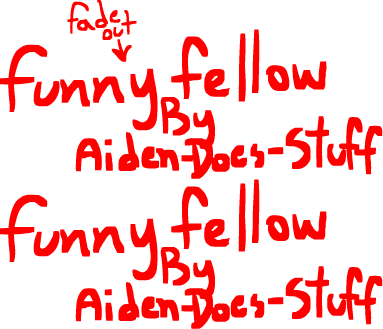 fade
out
funny fellow
By
Aiden-Does-Stuff
funny fellow
By
Aiden-Does-Stuff